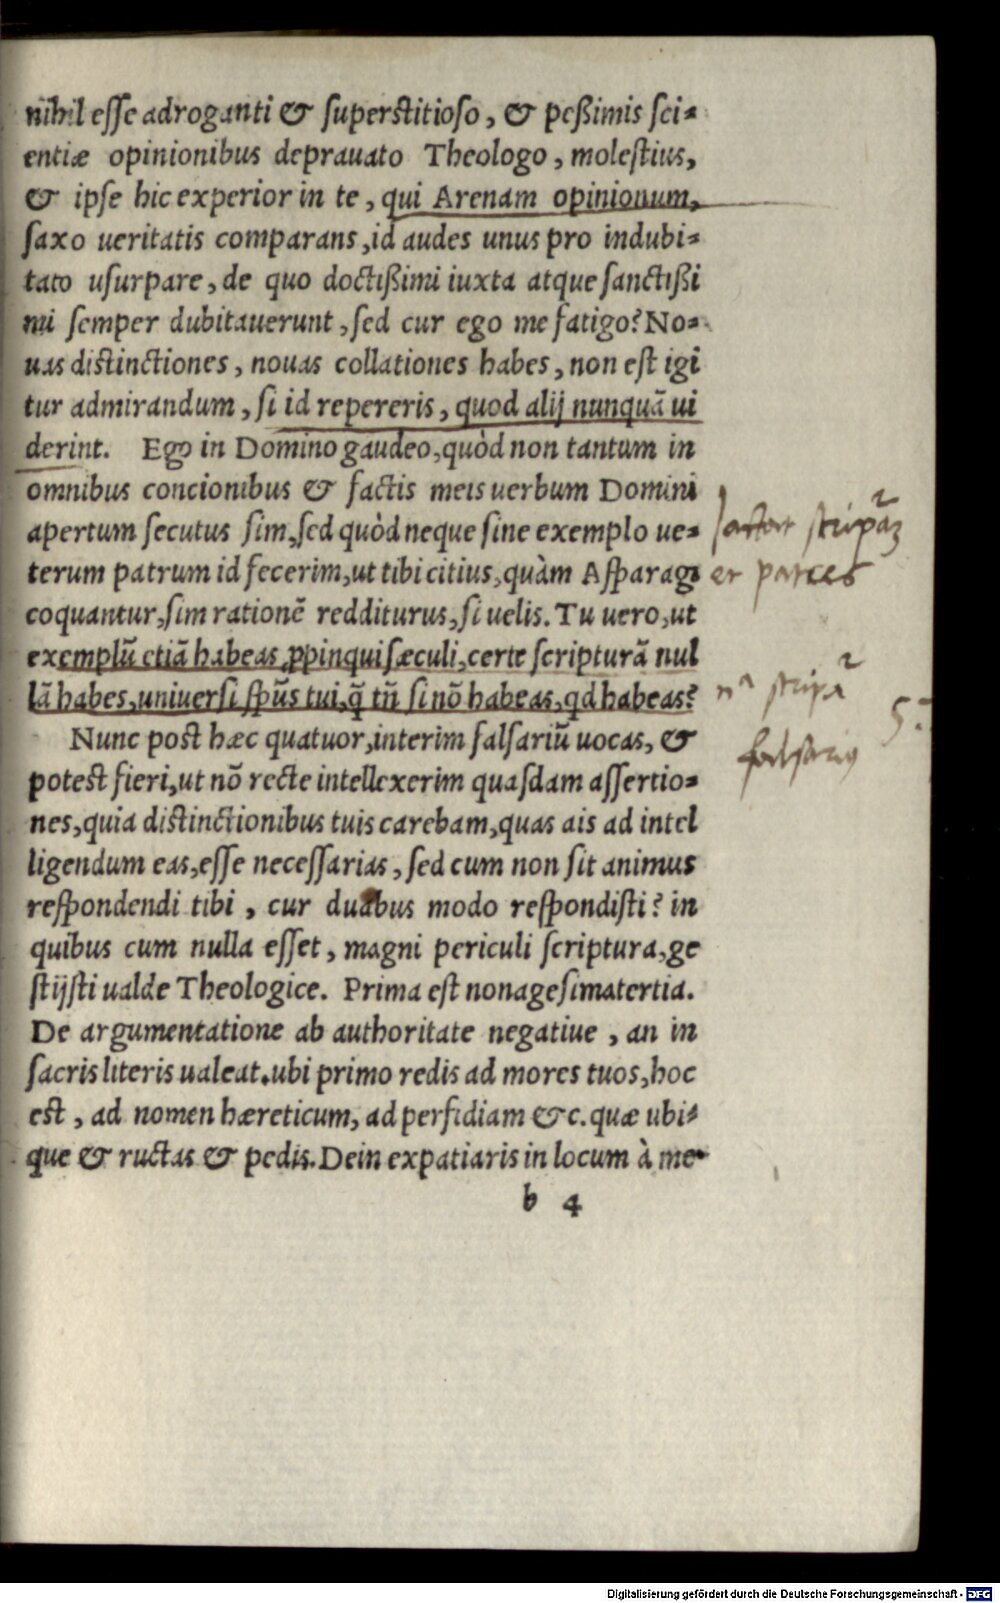 nihil esse adroganti & superstitioso, & peßimis sci-
entiæ opinionibus deprauato Theologo, molestius,
& ipse hic experior in te, qui Arenam opinionum,
saxo ueritatis comparans, id audes unus pro indubi-
tato usurpare, de quo doctißimi iuxta atque sanctißi
mi semper dubitauerunt, sed cur ego me fatigo? No-
uas distinctiones, nouas collationes habes, non est igĩ
tur admirandum, si id repereris, quod alij nunquã ui
derint. Ego in Domino gaudeo, quòd non tantum in
omnibus concionibus & factis meis uerbum Domini
apertum secutus sim, sed quòd neque sine exemplo ue-
terum patrum id fecerim, ut tibi citius, quàm Asparagi
coquantur, sim rationẽ redditurus, si uelis. Tu uero, ut
exemplũ etiã habeas ꝓpinqui sæculi, certe scripturã nul
lã habes, uniuersi sp̃us tui, q̃ tñ si nõ habeas, qd habeas?
Nunc post hæc quatuor, interim falsariũ uocas, &
potest fieri, ut nõ recte intellexerim quasdam assertio-
nes, quia distinctionibus tuis carebam, quas ais ad intel
ligendum eas, esse necessarias, sed cum non sit animus
respondendi tibi, cur duabus modo respondisti? in
quibus cum nulla esset, magni periculi scriptura, ge
stijsti ualde Theologice. Prima est nonagesimatertia.
De argumentatione ab authoritate negatiue, an in
sacris literis ualeat. ubi primo redis ad mores tuos, hoc
est, ad nomen hæreticum, ad perfidiam &c. quæ ubi-
que & ructas & pedis. Dein expatiaris in locum à me-
b 4
et patres
falsarius